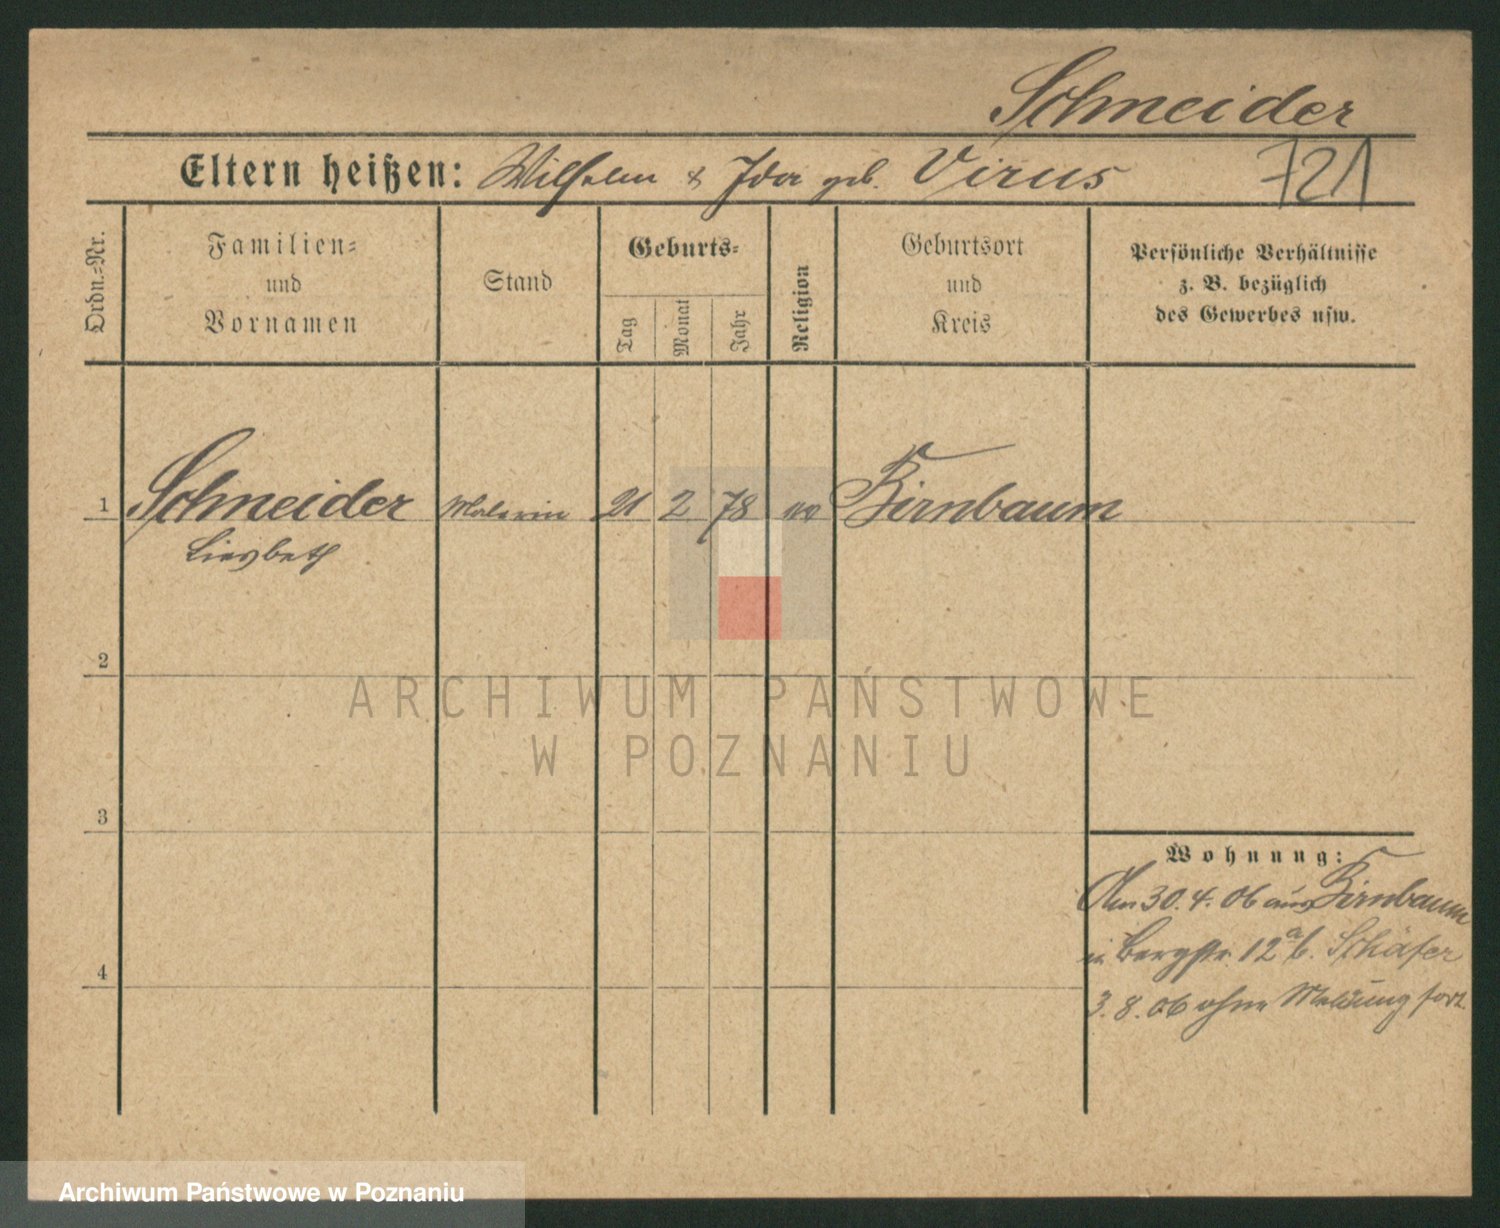 Schneider
Eltern heißen: Wilhelm & Ida geb. Virus
721
Ordn.-Nr.
Familien-
und
Vornamen
Stand
Geburts-
Tag
Monat
Jahr
Religion
Geburtsort
und
Kreis
Persönliche Verhältnisse
z. B. bezüglich
des Gewerbes usw.
1 Schneider Malerin 21 2 78 ev Birnbaum
Liesbeth
2
ARCHIWUM PAŃSTWOWE
W POZNANIU
3
Wohnung:
Am 30. 4. 06 aus Birnbaum
in Bergstr. 12a b. Schäfer
4
3. 8. 06 ohne Meldung fort.
Archiwum Państwowe w Poznaniu